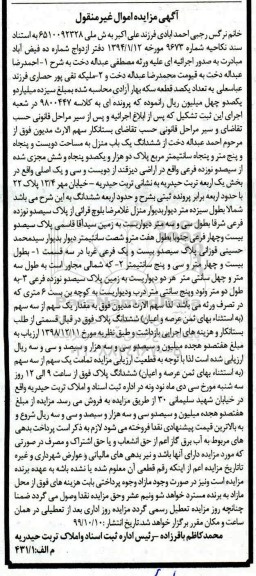 آگهی مزایده اموال غیر منقول
خانم نرگس رجبی احمد ابادی فرزند علی اکبر به ش ملی ۶۵۱۰۰۹۲۳۲۸ به استناد
سند نکاحیه شماره ۹۶۷۳ مورخه ۱۳۹۴/۱/۱۲ دفتر ازدواج شماره ده فیض آباد
مبادرت به صدور اجرائیه ای علیه ورثه مصطفی عبداله دخت به شرح ۱- احمدرضا
عبداله دخت به قیومت محمدرضا عبداله دخت و ۲-ملیکه تقی پور حصاری فرزند
عباسعلی به تعداد یکصد قطعه سکه بهار آزادی محاسبه شده بمبلغ سیزده میلیاردو
یکصدو چهل میلیون ریال رانموده که پرونده ای به کلاسه ۹۸۰۰۴۴۷ در شعبه
اجرای این ثبت تشکیل که پس از ابلاغ اجرائیه و پس از سیر مراحل قانونی حسب
تقاضای و سیر مراحل قانونی حسب تقاضای بستانکار سهم الارث مدیون فوق از
مرحوم احمد عبداله دخت از ششدانگ یک باب منزل به مساحت دویست و پنجاه
و پنج متر و پنجاه سانتیمتر مربع پلاک دو هزار و یکصدو پنجاه و شش مجزی شده
از سیصدو نوزده فرعی واقع در اراضی دیزقند از دویست و سی و یک اصلی واقع در
بخش یک اربعه تربت حیدریه به نشانی تربت حیدریه – خیابان مهر ۱۳/۴ پلاک ۲۲
با حدود اربعه برابر پرونده ثبتی بشرح و حدود اربعه ششدانگ به این شرح می باشد
شمالا بطول سیزده متر دیواربدیوار منزل غلامرضا بلوچ قرائی از پلاک سیصدو نوزده
فرعی شرقا بطول سی و سه متر دیواریست به زمین سیدآقا قاسمی پلاک سیصدو
بیست وچهار فرعی جنوبا بطول هفت مترو شصت سانتیمتر دیوار بدیوار سیدمحمد
حسینی قوزلق پلاک سیصدو بیست و یک فرعی غربا در سه قسمت ۱- بطول
بیست و چهار متر و سی و پنج سانتیمتر ۲- که شمالی مجاور است به طول سه
متر و چهل سانتی متر هر دو دیواریست به زمین پلاک سیصدو نوزده فرعی ۳-به
طول دو متر ونود وپنج سانتی متر درب ودیواریست به کوچه بن بست ۶ متری که
در تصرف ورثه می باشد. لذا سهم الارث مدیون فوق به مقدار یک سهم از سه سهم
(به استثناء بهای ثمن عرصه و اعیان) ششدانگ پلاک فوق در قبال قسمتی از طلب
بستانکار و هزینه های اجرایی بازداشت و طبق نظریه مورخ ۱۳۹۸/۱۲/۱۱ ارزیاب به
مبلغ هفتصدو هجده میلیون و سیصدو سی وسه هزار و سیصد و سی و سه ریال
ارزیابی شده است لذا با توجه به قطعیت ارزیابی مزایده تمامت یک سهم از سه سهم
(به استثناء بهای ثمن عرصه و اعیان) ششدانگ پلاک فوق از ساعت ۹ الی ۱۲ روز
سه شنبه مورخ سی دی ماه نود ونه در اداره ثبت اسناد و املاک تربت حیدریه واقع
در خیابان شهید سلیمانی ۳۰ از طریق مزایده به فروش می رسد. مزایده از مبلغ
هفتصدو هجده میلیون و سیصدو سی و سه هزار و سیصد و سی و سه ریال شروع و
به بالاترین قیمت پیشنهادی نقدا فروخته می شود لازم به ذکر است پرداخت بدهی
های مربوط به آب برق گاز اعم از حق انشعاب و یا حق اشتراک و مصرف در صورتی
که مورد مزایده دارای آنها باشد و نیز بدهی های مالیاتی و عوارض شهرداری و غیره
تاتاریخ مزایده اعم از اینکه رقم قطعی آن معلوم شده یا نشده باشه به عهده برنده
مزایده است ونیز در صورت وجود مازاد وجوه پرداختی بابت هزینه های فوق از محل
مازاد به برنده مسترد خواهد شد ونیم عشر وحق مزایده نقدا وصول می گردد ضمنا
چنانچه روز مزایده تعطیل رسمی گردد مزایده روز اداری بعد از تعطیلی در همان
ساعت و مکان مقرر برگزار خواهد شد.تاریخ انتشار :۹۹/۱۰/۱۰
محمد کاظم باقرزاده –رئیس اداره ثبت اسناد و املاک تربت حیدریه
م الف:۴۳۱/۱